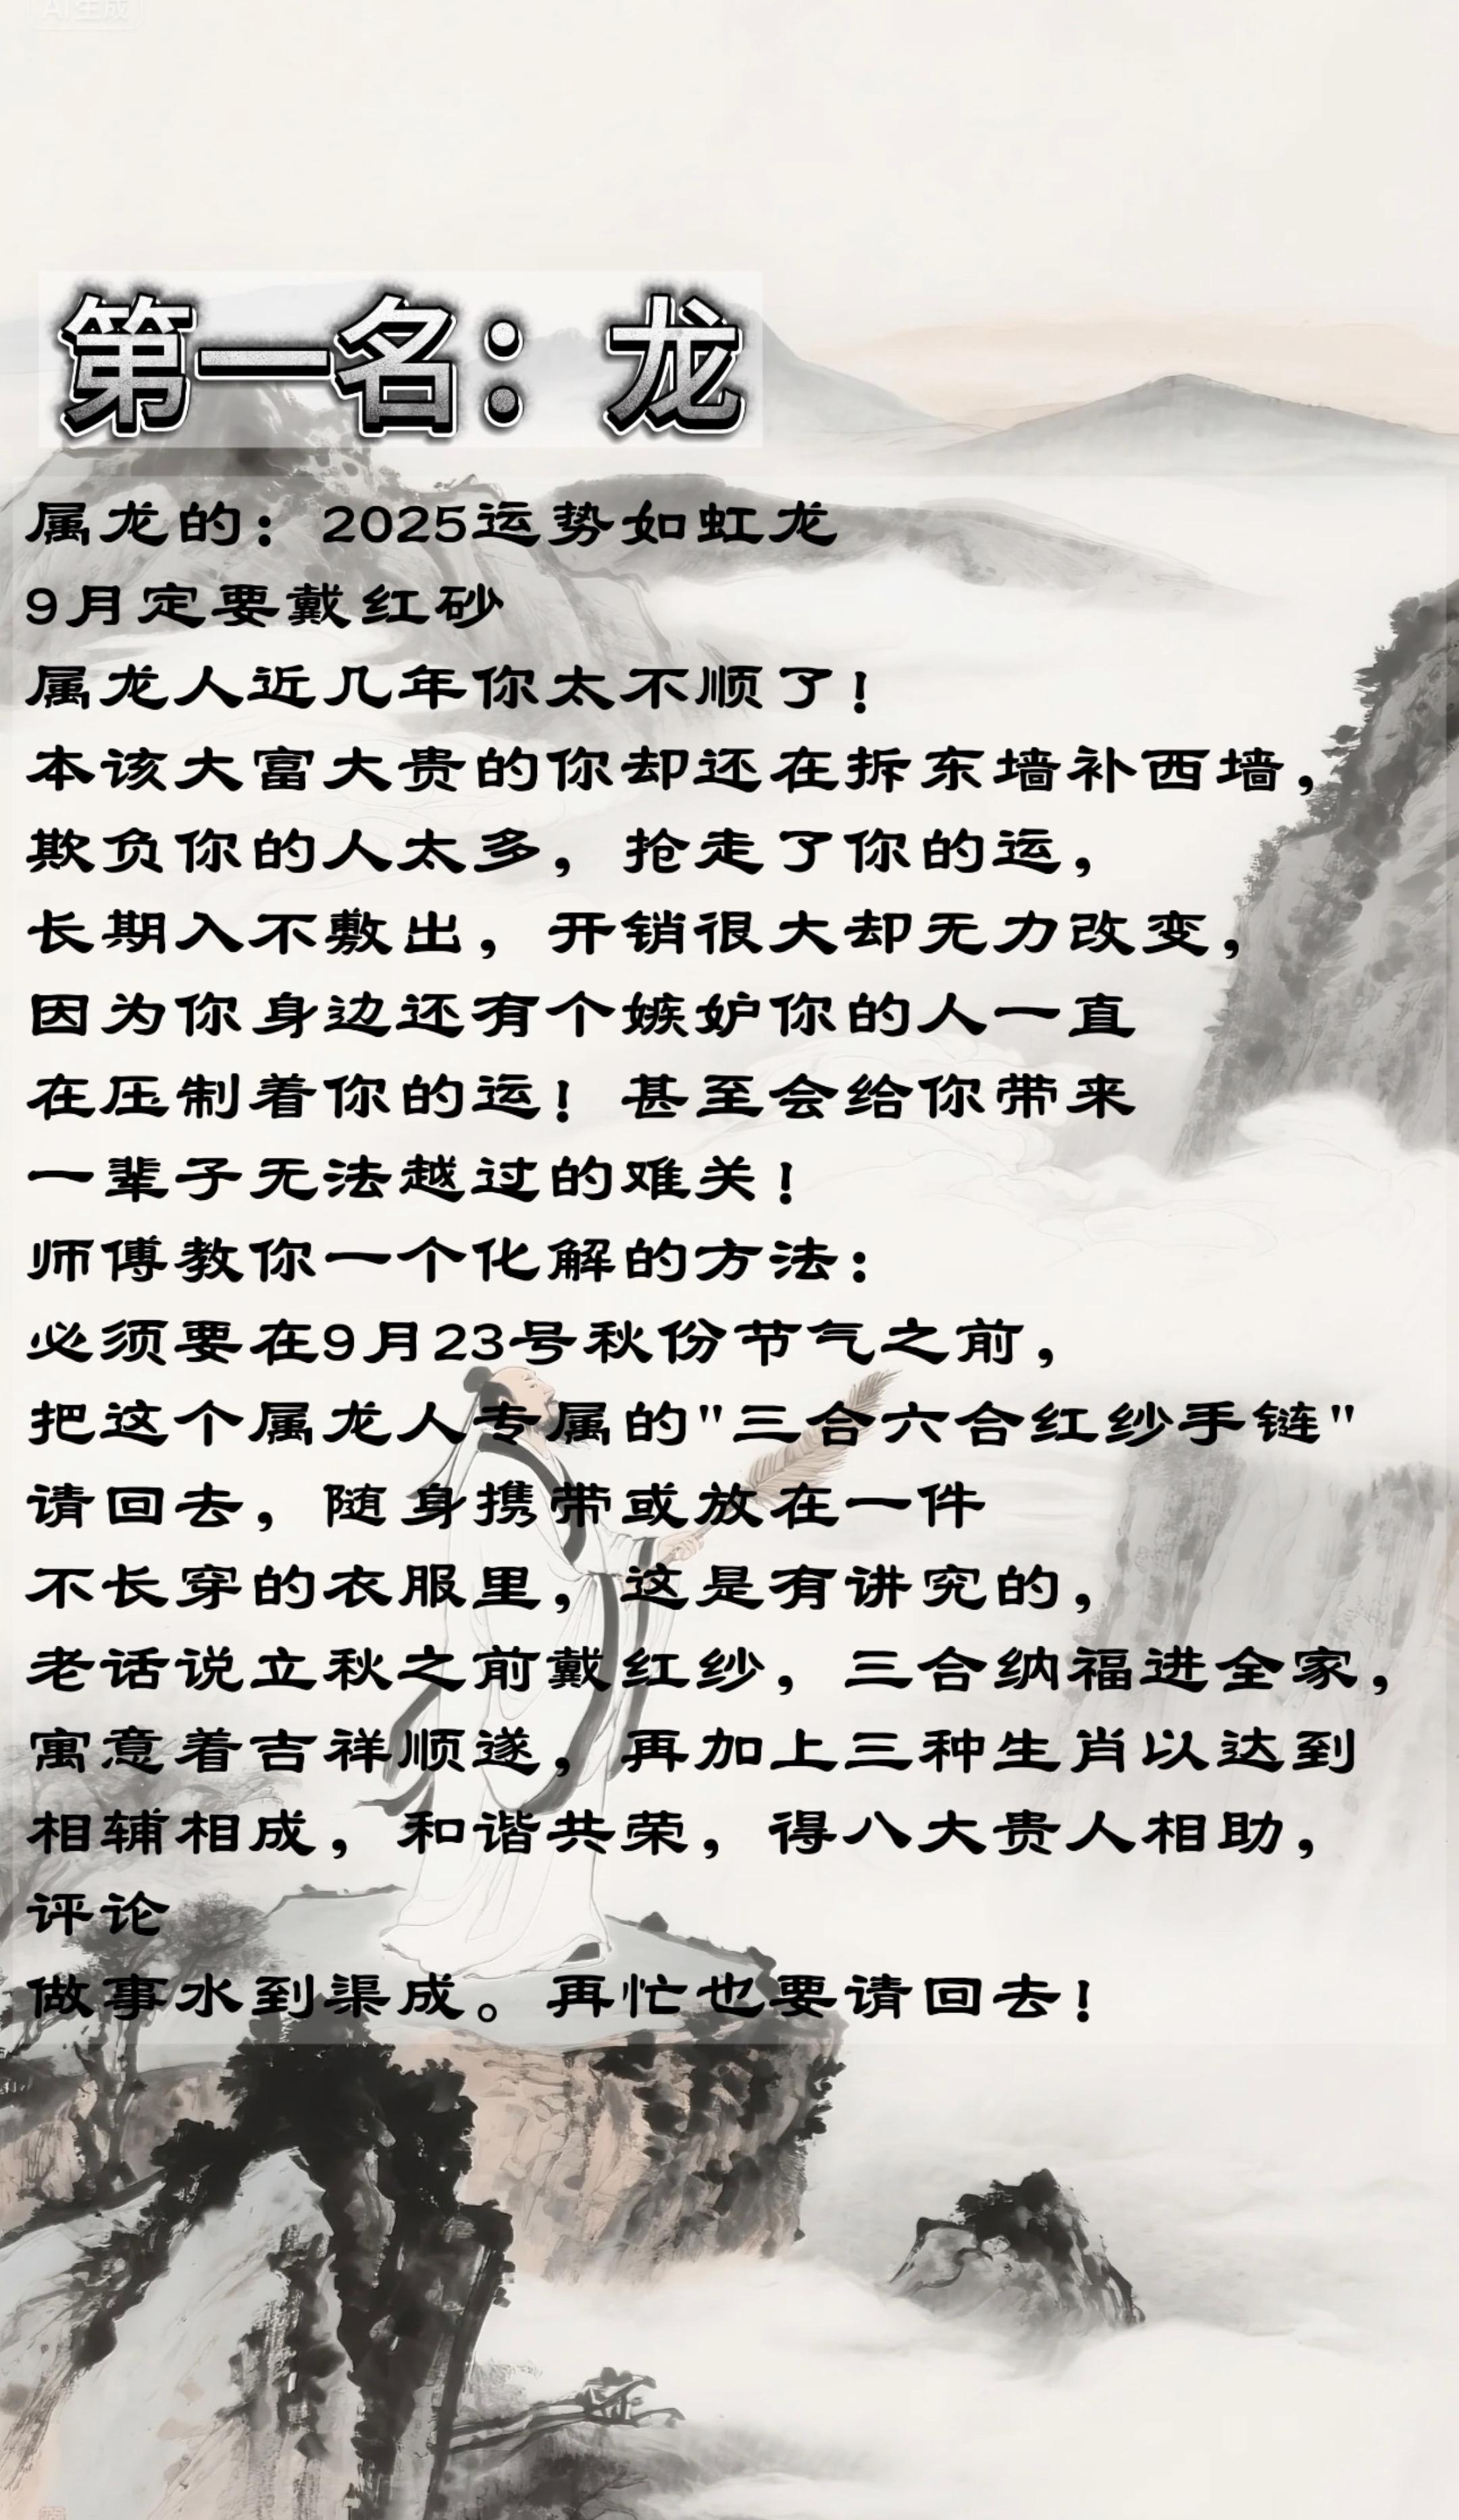 AI生成
第一名：龙
属龙的：2025运势如虹龙
9月定要戴红砂
属龙人近几年你太不顺了！
本该大富大贵的你却还在拆东墙补西墙，
欺负你的人太多，抢走了你的运，
长期入不敷出，开销很大却无力改变，
因为你身边还有个嫉妒你的人一直
在压制着你的运！甚至会给你带来
一辈子无法越过的难关！
师傅教你一个化解的方法：
必须要在9月23号秋份节气之前，
把这个属龙人专属的"三合六合红纱手链"
请回去，随身携带或放在一件
不长穿的衣服里，这是有讲究的，
老话说立秋之前戴红纱，三合纳福进全家，
寓意着吉祥顺遂，再加上三种生肖以达到
相辅相成，和谐共荣，得八大贵人相助，
评论
做事水到渠成。再忙也要请回去！